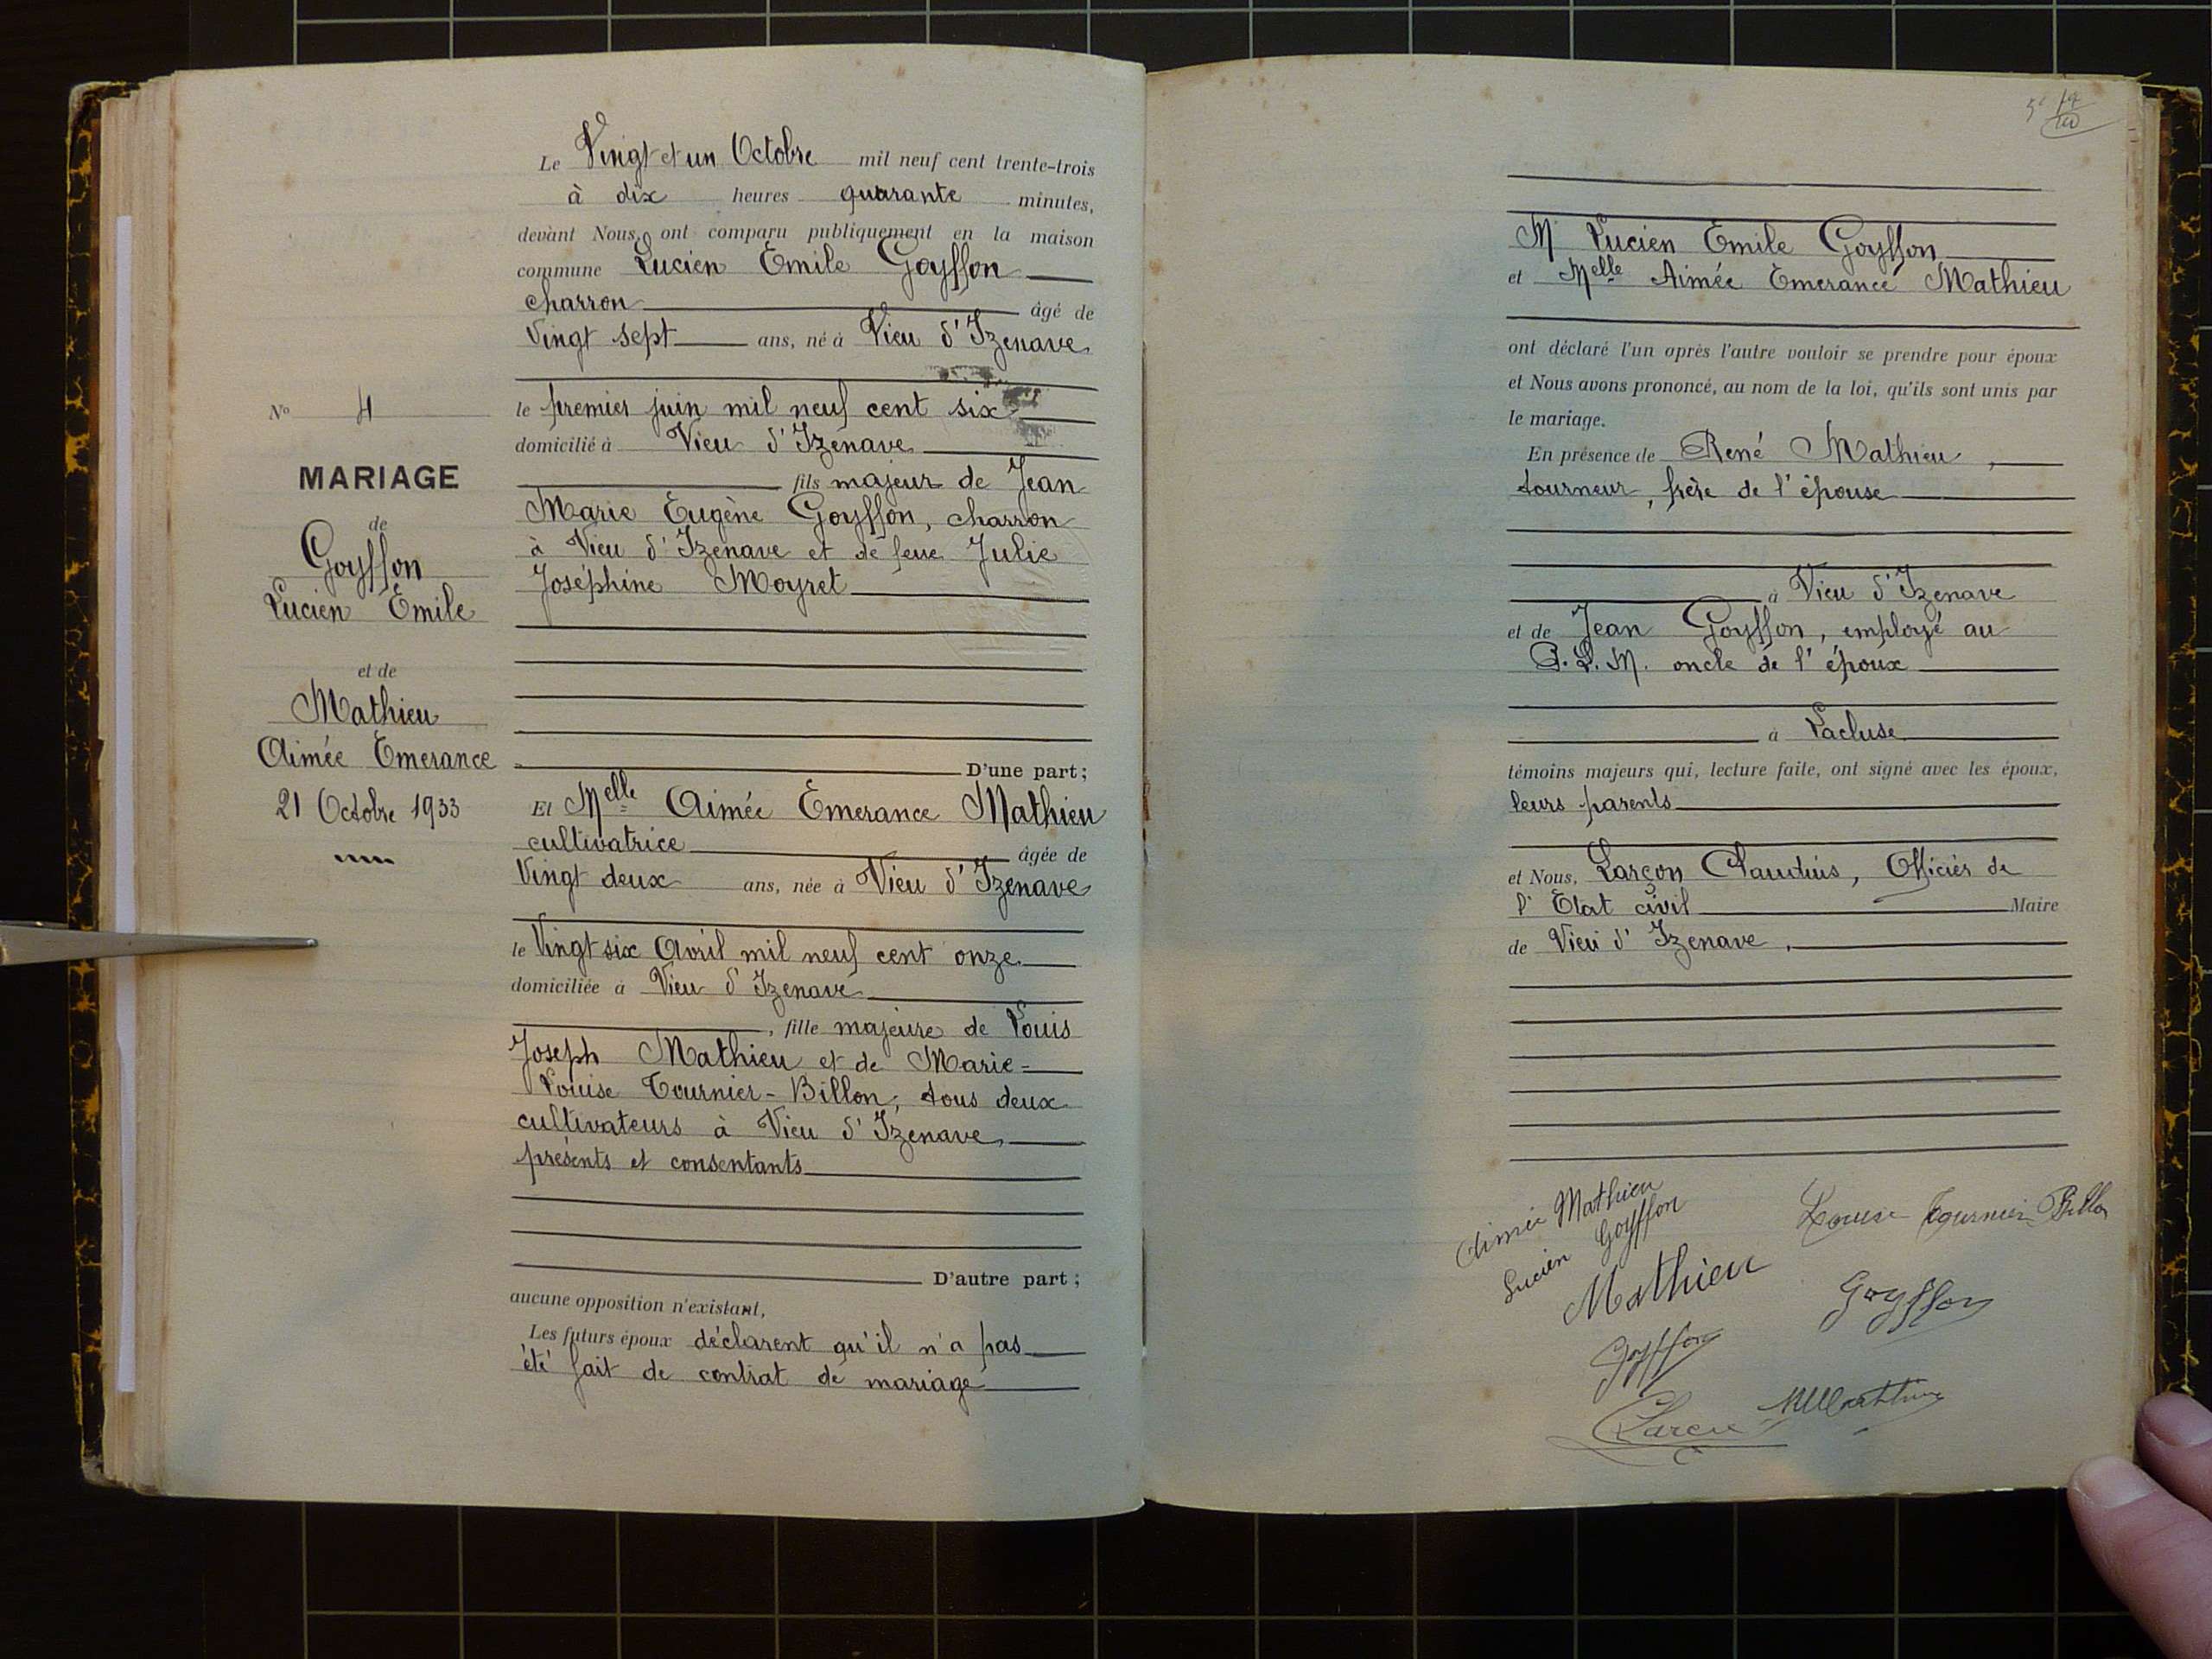 Le Vingt et un Octobre mil neuf cent trente-trois
à dix heures quarante minutes,
devant Nous, ont comparu publiquement en la maison
commune Lucien Emile Goyffon
charron âgé de
Vingt sept ans, né à Vieu d'Izenave
le premier juin mil neuf cent six
domicilié à Vieu d'Izenave
fils majeur de Jean
Marie Eugène Goyffon, charron
à Vieu d'Izenave et de feue Julie
Joséphine Moyret
D'une part;
Et Melle Aimée Emerance Mathieu
cultivatrice âgée de
Vingt deux ans, née à Vieu d'Izenave
le Vingt six Avril mil neuf cent onze
domiciliée à Vieu d'Izenave
, fille majeure de Louis
Joseph Mathieu et de Marie-
Louise Tournier-Billon, tous deux
cultivateurs à Vieu d'Izenave,
présents et consentants
D'autre part;
aucune opposition n'existant,
Les futurs époux déclarent qu'il n'a pas
été fait de contrat de mariage
No 4
MARIAGE
de
Goyffon
Lucien Emile
et de
Mathieu
Aimée Emerance
21 Octobre 1933
M Lucien Emile Goyffon
et Melle Aimée Emerance Mathieu
ont déclaré l'un après l'autre vouloir se prendre pour époux
et Nous avons prononcé, au nom de la loi, qu'ils sont unis par
le mariage.
En présence de René Mathieu,
tourneur, frère de l'épouse
à Vieu d'Izenave
et de Jean Goyffon, employé au
P.L.M. oncle de l'époux
à Lacluse
témoins majeurs qui, lecture faite, ont signé avec les époux,
leurs parents
et Nous, Larçon Claudius, Officier de
l'Etat civil Maire
de Vieu d'Izenave,
Aimée Mathieu
Lucien Goyffon
Louise Tournier Billon
Mathieu
Goyffon
Goyffon